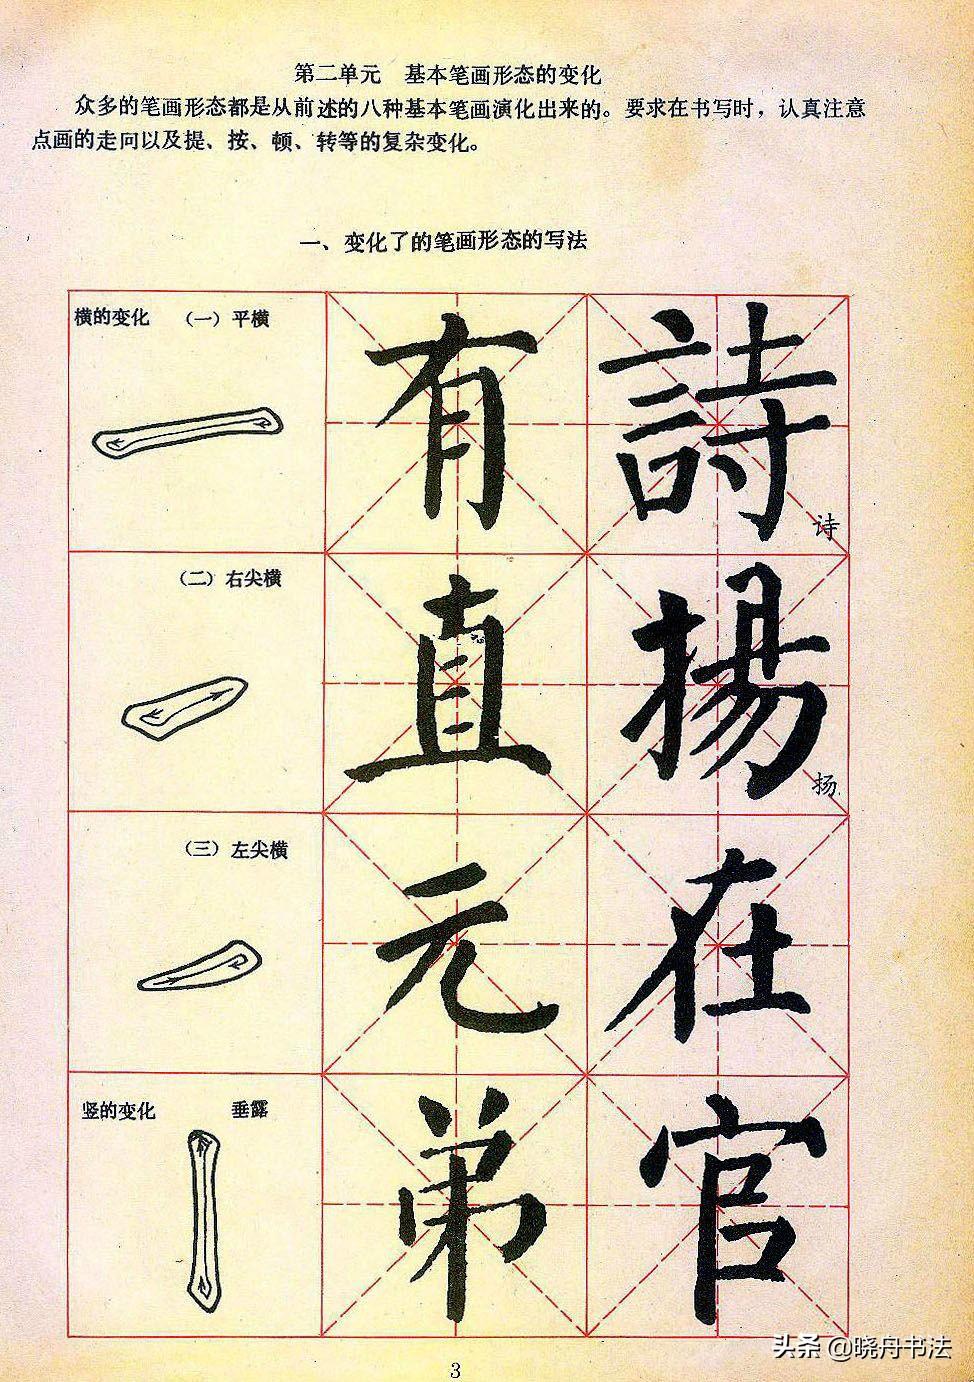 第二单元　基本笔画形态的变化
众多的笔画形态都是从前述的八种基本笔画演化出来的。要求在书写时，认真注意
点画的走向以及提、按、顿、转等的复杂变化。
一、变化了的笔画形态的写法
横的变化　（一）平横
有　詩
诗
（二）右尖横
直　揚
扬
（三）左尖横
元　在
竖的变化　垂露
弟　官
头条 @晓舟书法
3